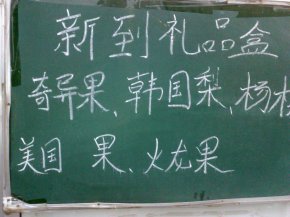 新到礼品盒
奇异果、韩国梨、杨
美国 果、火龙果